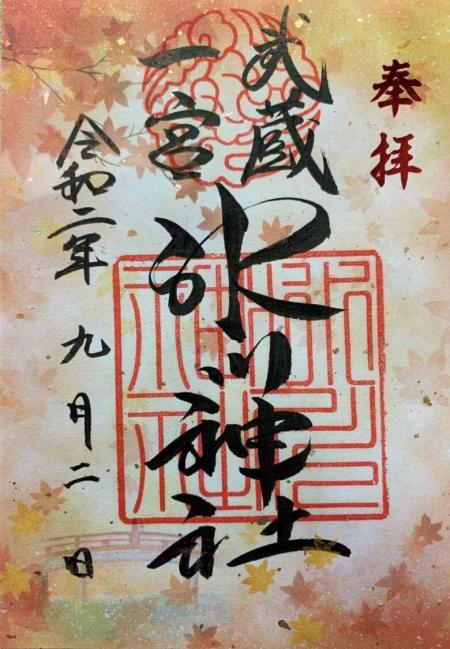 奉拝
武蔵
一宮
氷川神社
令和二年九月二日